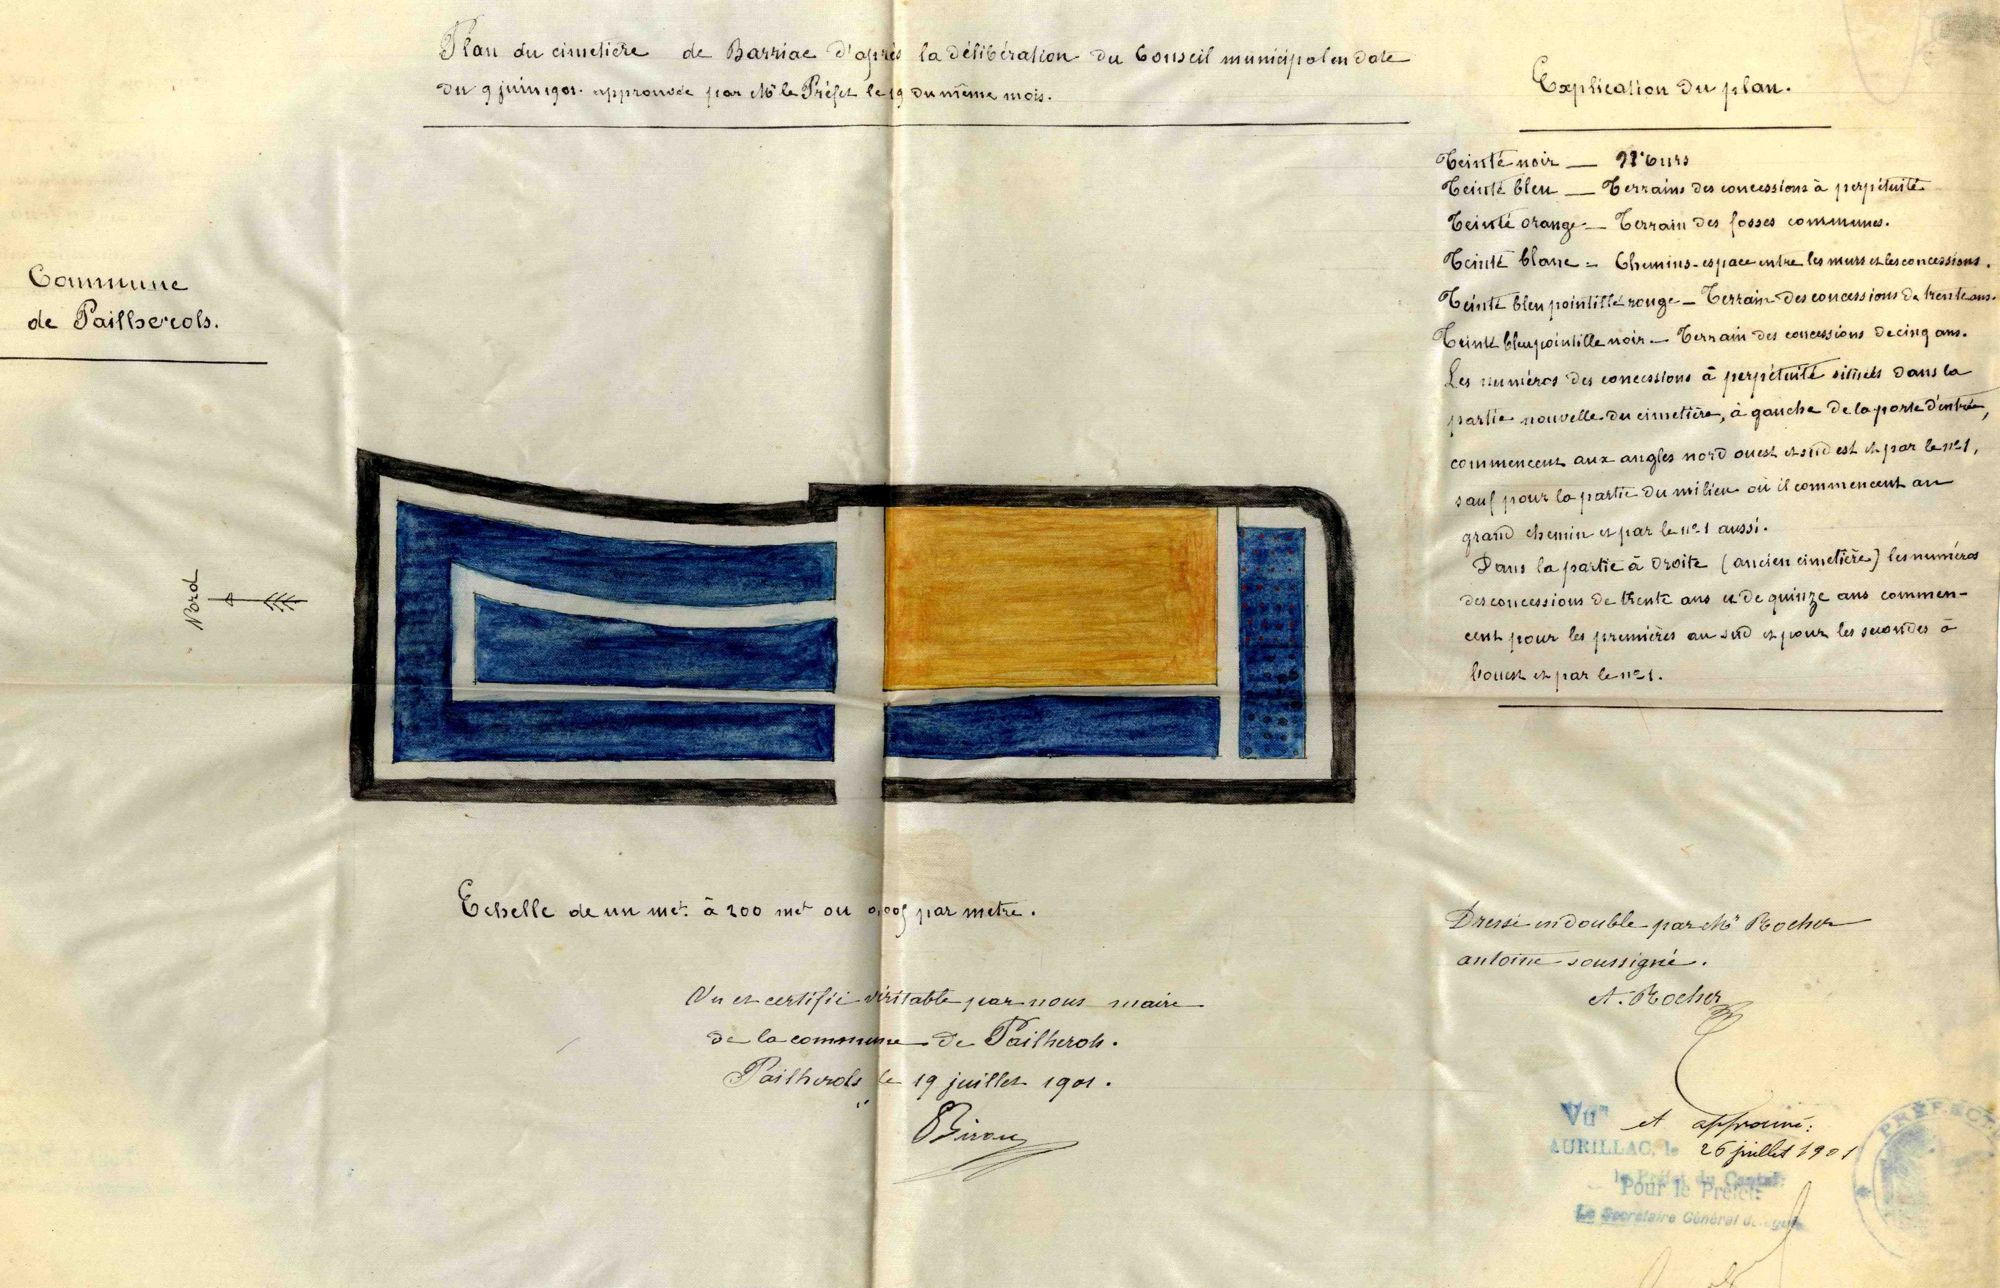 Plan du cimetière de Barriac d'après la délibération du Conseil municipal en date
du 9 juin 1901. approuvée par Mr le Préfet le 19 du même mois.
Commune
de Pailherols.
Nord
Explication du plan.
Teinté noir — Murs
Teinté bleu — Terrains des concessions à perpétuité
Teinté orange — Terrain des fosses communes.
Teinté blanc = Chemins - espace entre les murs et les concessions.
Teinté bleu pointillé rouge — Terrain des concessions de trente ans.
Teinté bleu pointillé noir — Terrain des concessions de cinq ans.
Les numéros des concessions à perpétuité situées dans la
partie nouvelle du cimetière, à gauche de la porte d'entrée,
commencent aux angles nord ouest et sud est et par le n° 1,
sauf pour la partie du milieu où il commencent au
grand chemin et par le n° 1 aussi.
Dans la partie à droite (ancien cimetière) les numéros
des concessions de trente ans et de quinze ans commen-
cent pour les premières au sud et pour les secondes à
l'ouest et par le n° 1.
Echelle de un met. à 200 met ou 0,005 par metre.
Vu et certifié véritable par nous maire
de la commune de Pailherols.
Pailherols le 19 juillet 1901.
Dressé en double par Mr Rocher
antoine soussigné.
A. Rocher
Vu et approuvé:
AURILLAC, le 26 juillet 1901
le Préfet du Cantal
Pour le Préfet:
Le Secrétaire Général
PRÉFECT